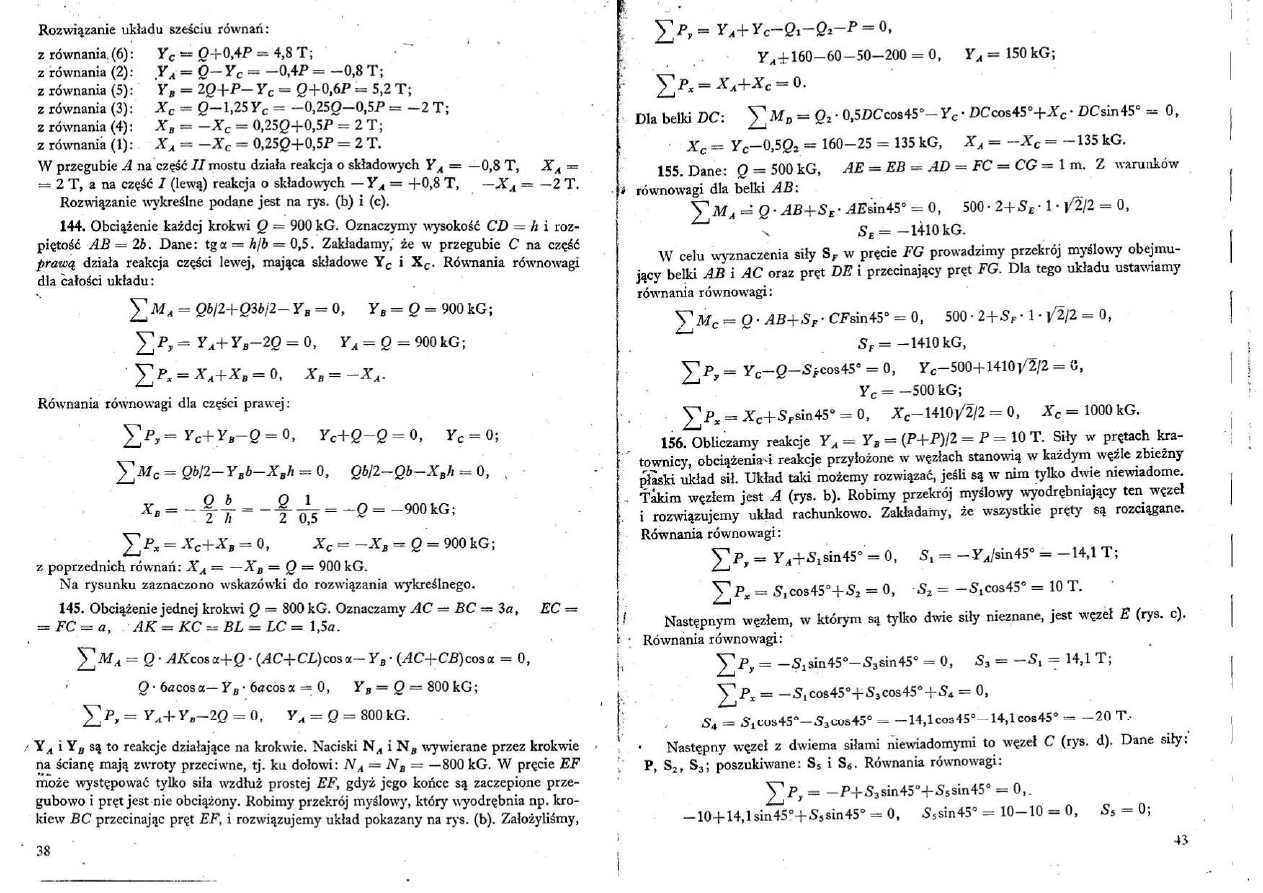 Rozwiązanie układu sześciu równań:
z równania (6): Y_C = Q+0,4P = 4,8 T;
z równania (2): Y_A = Q−Y_C = −0,4P = −0,8 T;
z równania (5): Y_B = 2Q+P−Y_C = Q+0,6P = 5,2 T;
z równania (3): X_C = Q−1,25Y_C = −0,25Q−0,5P = −2 T;
z równania (4): X_B = −X_C = 0,25Q+0,5P = 2 T;
z równania (1): X_A = −X_C = 0,25Q+0,5P = 2 T.
W przegubie A na część II mostu działa reakcja o składowych Y_A = −0,8 T, X_A =
= 2 T, a na część I (lewą) reakcja o składowych −Y_A = +0,8 T, −X_A = −2 T.
Rozwiązanie wykreślne podane jest na rys. (b) i (c).
144. Obciążenie każdej krokwi Q = 900 kG. Oznaczymy wysokość CD = h i roz-
piętość AB = 2b. Dane: tg α = h/b = 0,5. Zakładamy, że w przegubie C na część
prawą działa reakcja części lewej, mająca składowe Y_C i X_C. Równania równowagi
dla całości układu:
∑M_A = Qb/2+Q3b/2−Y_B = 0, Y_B = Q = 900 kG;
∑P_y = Y_A+Y_B−2Q = 0, Y_A = Q = 900 kG;
∑P_x = X_A+X_B = 0, X_B = −X_A.
Równania równowagi dla części prawej:
∑P_y = Y_C+Y_B−Q = 0, Y_C+Q−Q = 0, Y_C = 0;
∑M_C = Qb/2−Y_Bb−X_Bh = 0, Qb/2−Qb−X_Bh = 0,
X_B = −Q/2 b/h = −Q/2 1/0,5 = −Q = −900 kG;
∑P_x = X_C+X_B = 0, X_C = −X_B = Q = 900 kG;
z poprzednich równań: X_A = −X_B = Q = 900 kG.
Na rysunku zaznaczono wskazówki do rozwiązania wykreślnego.
145. Obciążenie jednej krokwi Q = 800 kG. Oznaczamy AC = BC = 3a, EC =
= FC = a, AK = KC = BL = LC = 1,5a.
∑M_A = Q · AKcos α+Q · (AC+CL)cos α−Y_B · (AC+CB)cos α = 0,
Q · 6acos α−Y_B · 6acos α = 0, Y_B = Q = 800 kG;
∑P_y = Y_A+Y_B−2Q = 0, Y_A = Q = 800 kG.
Y_A i Y_B są to reakcje działające na krokwie. Naciski N_A i N_B wywierane przez krokwie
na ścianę mają zwroty przeciwne, tj. ku dołowi: N_A = N_B = −800 kG. W pręcie EF
może występować tylko siła wzdłuż prostej EF, gdyż jego końce są zaczepione prze-
gubowo i pręt jest nie obciążony. Robimy przekrój myślowy, który wyodrębnia np. kro-
kiew BC przecinając pręt EF, i rozwiązujemy układ pokazany na rys. (b). Założyliśmy,
38
∑P_y = Y_A+Y_C−Q₁−Q₂−P = 0,
Y_A+160−60−50−200 = 0, Y_A = 150 kG;
∑P_x = X_A+X_C = 0.
Dla belki DC: ∑M_D = Q₂ · 0,5DCcos45°−Y_C · DCcos45°+X_C · DCsin45° = 0,
X_C = Y_C−0,5Q₂ = 160−25 = 135 kG, X_A = −X_C = −135 kG.
155. Dane: Q = 500 kG, AE = EB = AD = FC = CG = 1 m. Z warunków
równowagi dla belki AB:
∑M_A = Q · AB+S_E · AEsin45° = 0, 500 · 2+S_E · 1 · √2/2 = 0,
S_E = −1410 kG.
W celu wyznaczenia siły S_F w pręcie FG prowadzimy przekrój myślowy obejmu-
jący belki AB i AC oraz pręt DE i przecinający pręt FG. Dla tego układu ustawiamy
równania równowagi:
∑M_C = Q · AB+S_F · CFsin45° = 0, 500 · 2+S_F · 1 · √2/2 = 0,
S_F = −1410 kG,
∑P_y = Y_C−Q−S_Fcos45° = 0, Y_C−500+1410√2/2 = 0,
Y_C = −500 kG;
∑P_x = X_C+S_Fsin45° = 0, X_C−1410√2/2 = 0, X_C = 1000 kG.
156. Obliczamy reakcje Y_A = Y_B = (P+P)/2 = P = 10 T. Siły w prętach kra-
townicy, obciążenia i reakcje przyłożone w węzłach stanowią w każdym węźle zbieżny
płaski układ sił. Układ taki możemy rozwiązać, jeśli są w nim tylko dwie niewiadome.
Takim węzłem jest A (rys. b). Robimy przekrój myślowy wyodrębniający ten węzeł
i rozwiązujemy układ rachunkowo. Zakładamy, że wszystkie pręty są rozciągane.
Równania równowagi:
∑P_y = Y_A+S₁sin45° = 0, S₁ = −Y_A/sin45° = −14,1 T;
∑P_x = S₁cos45°+S₂ = 0, S₂ = −S₁cos45° = 10 T.
Następnym węzłem, w którym są tylko dwie siły nieznane, jest węzeł E (rys. c).
Równania równowagi:
∑P_y = −S₁sin45°−S₃sin45° = 0, S₃ = −S₁ = 14,1 T;
∑P_x = −S₁cos45°+S₃cos45°+S₄ = 0,
S₄ = S₁cos45°−S₃cos45° = −14,1cos45°−14,1cos45° = −20 T.
Następny węzeł z dwiema siłami niewiadomymi to węzeł C (rys. d). Dane siły:
P, S₂, S₃; poszukiwane: S₅ i S₆. Równania równowagi:
∑P_y = −P+S₃sin45°+S₅sin45° = 0,
−10+14,1sin45°+S₅sin45° = 0, S₅sin45° = 10−10 = 0, S₅ = 0;
43